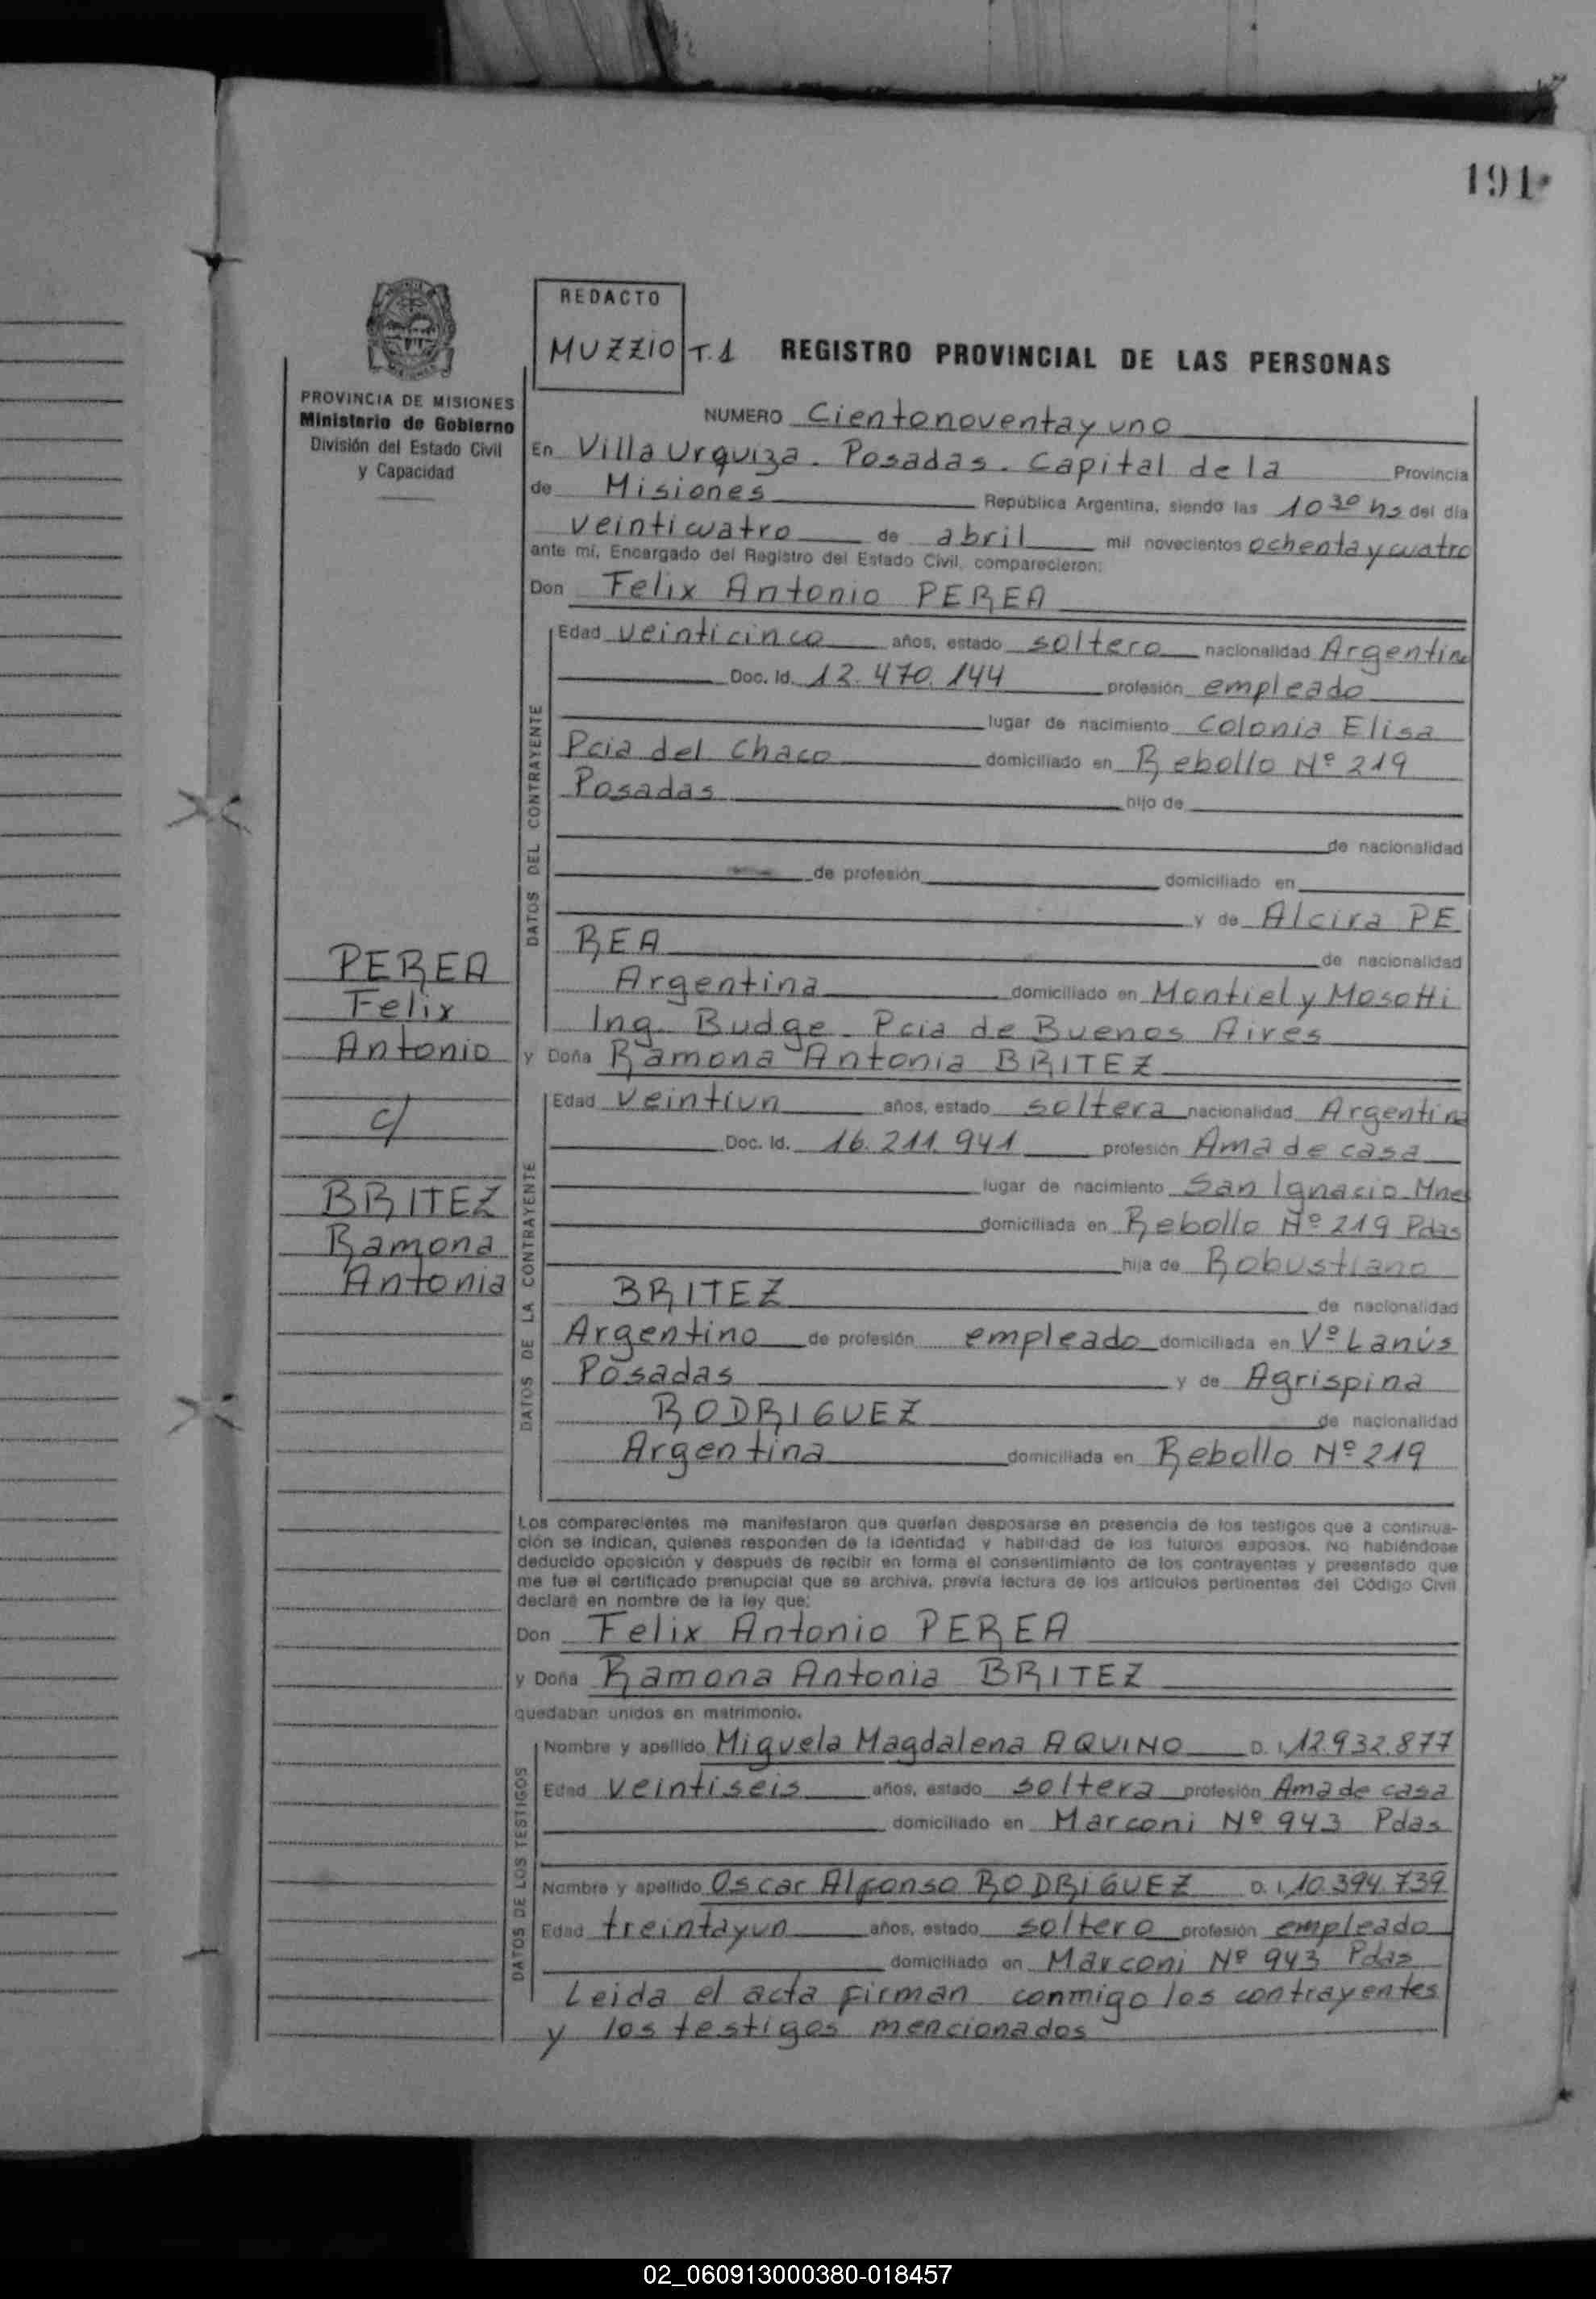 191
REDACTO
MUZZIO T.1
REGISTRO PROVINCIAL DE LAS PERSONAS
PROVINCIA DE MISIONES
Ministerio de Gobierno
División del Estado Civil
y Capacidad
NUMERO Cientonoventay uno
En Villa Urquiza. Posadas. Capital de la Provincia
de Misiones República Argentina, siendo las 10 30 hs del día
veinticuatro de abril mil novecientos ochenta y cuatro
ante mí, Encargado del Registro del Estado Civil, comparecieron:
Don Felix Antonio PEREA
DATOS DEL CONTRAYENTE
Edad veinticinco años, estado soltero nacionalidad Argentino
Doc. Id. 12.470.144 profesión empleado
lugar de nacimiento Colonia Elisa
Pcia del Chaco domiciliado en Rebollo Nº 219
Posadas hijo de
de nacionalidad
de profesión domiciliado en
y de Alcira PE
REA de nacionalidad
Argentina domiciliado en Montiel y Mosotti
Ing. Budge. Pcia de Buenos Aires
y Doña Ramona Antonia BRITEZ
PEREA
Felix
Antonio
c/
BRITEZ
Ramona
Antonia
DATOS DE LA CONTRAYENTE
Edad veintiun años, estado soltera nacionalidad Argentina
Doc. Id. 16.211.941 profesión Ama de casa
lugar de nacimiento San Ignacio Mnes
domiciliada en Rebollo Nº 219 Pdas
hija de Robustiano
BRITEZ de nacionalidad
Argentino de profesión empleado domiciliada en Vº Lanús
Posadas y de Agrispina
RODRIGUEZ de nacionalidad
Argentina domiciliada en Rebollo Nº 219
Los comparecientes me manifestaron que querían desposarse en presencia de los testigos que a continua-
ción se indican, quienes responden de la identidad y habilidad de los futuros esposos. No habiéndose
deducido oposición y después de recibir en forma el consentimiento de los contrayentes y presentado que
me fue el certificado prenupcial que se archiva, previa lectura de los artículos pertinentes del Código Civil
declaré en nombre de la ley que:
Don Felix Antonio PEREA
y Doña Ramona Antonia BRITEZ
quedaban unidos en matrimonio.
DATOS DE LOS TESTIGOS
Nombre y apellido Miguela Magdalena AQUINO D. I. 12.932.877
Edad veintiseis años, estado soltera profesión Ama de casa
domiciliado en Marconi Nº 943 Pdas
Nombre y apellido Oscar Alfonso RODRIGUEZ D. I. 10.394.739
Edad treintayun años, estado soltero profesión empleado
domiciliado en Marconi Nº 943 Pdas
Leida el acta firman conmigo los contrayentes
y los testigos mencionados
02_060913000380-018457